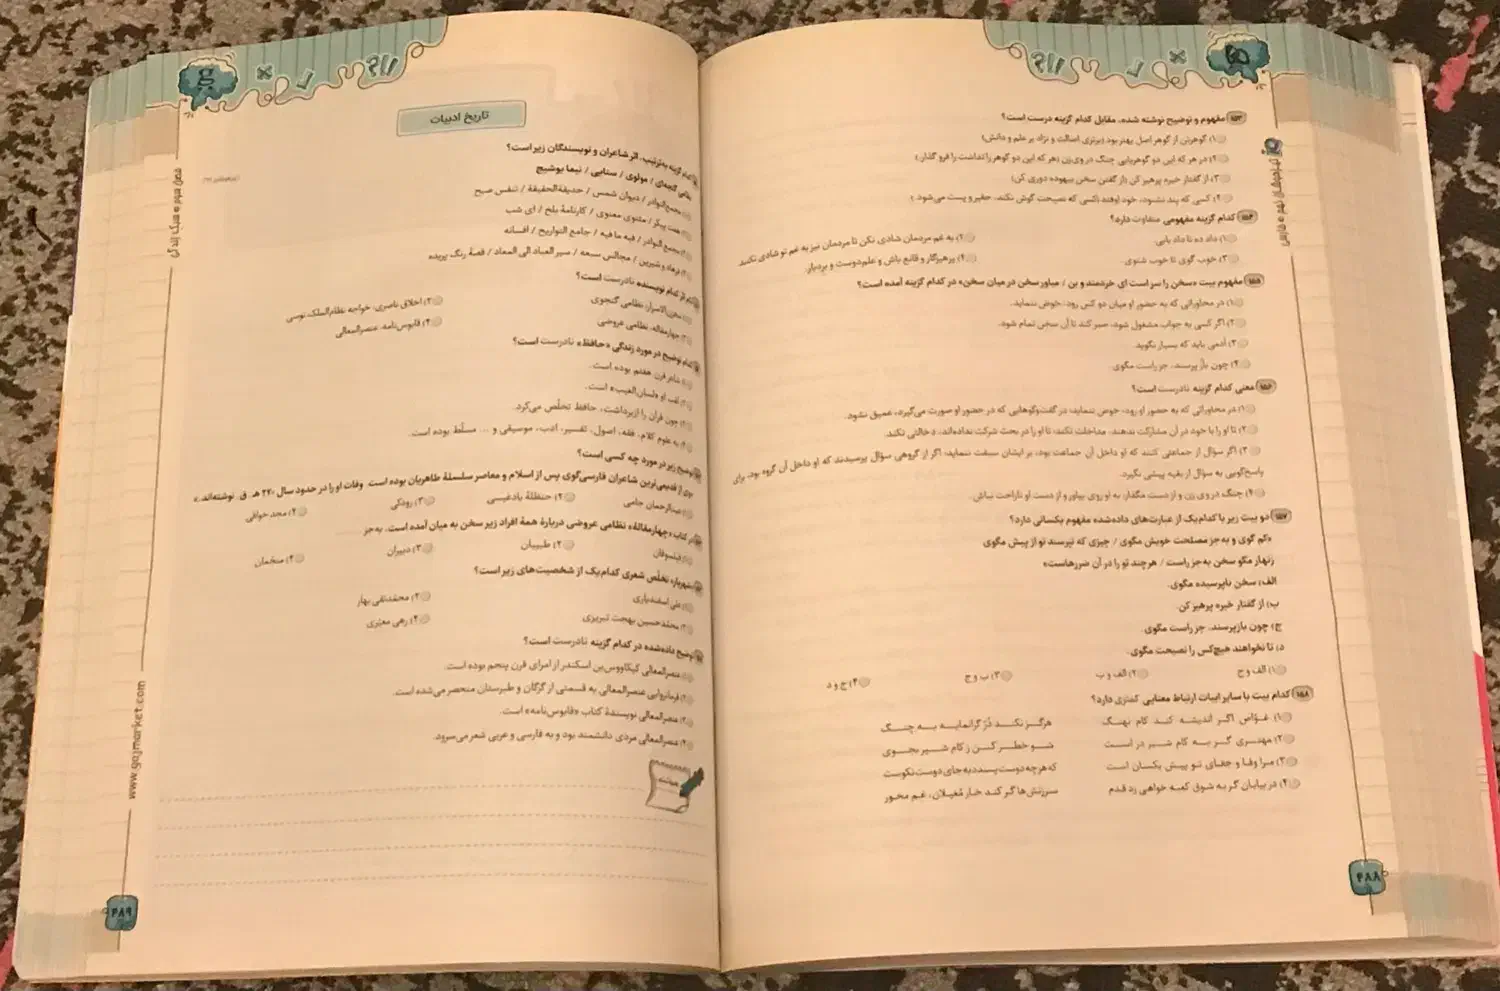 ۱۵۳ مفهوم و توضیح نوشته شده، مقابل کدام گزینه درست است؟
۱) گوهرتن از گوهر اصل بهتر بود (برتری اصالت و نژاد بر علم و دانش)
۲) در هر که این دو گوهر یابی چنگ در وی زن (هر که این دو گوهر را نداشت را فرو گذار.)
۳) از گفتار خیره پرهیز کن (از گفتن سخن بیهوده دوری کن)
۴) کسی که پند نشنود، خود اوفتد (کسی که نصیحت گوش نکند، حقیر و پست می‌شود.)
۱۵۴ کدام گزینه مفهومی متفاوت دارد؟
۱) داد ده تا داد یابی.
۲) به غم مردمان شادی نکن تا مردمان نیز به غم تو شادی نکنند.
۳) خوب گوی تا خوب شنوی.
۴) پرهیزگار و قانع باش و علم‌دوست و بردبار.
۱۵۵ مفهوم بیت «سخن را سر است ای خردمند و بن / میاور سخن در میان سخن» در کدام گزینه آمده است؟
۱) در محاوراتی که به حضور او میان دو کس رود، خوض ننماید.
۲) اگر کسی به جواب مشغول شود، صبر کند تا آن سخن تمام شود.
۳) آدمی باید که بسیار نگوید.
۴) چون باز پرسند، جز راست مگوی.
۱۵۶ معنی کدام گزینه نادرست است؟
۱) در محاوراتی که به حضور او رود، خوض ننماید: در گفت‌وگوهایی که در حضور او صورت می‌گیرد، عمیق نشود.
۲) تا او را با خود در آن مشارکت ندهند، مداخلت نکند: تا او را در بحث شرکت نداده‌اند، دخالتی نکند.
۳) اگر سؤال از جماعتی کنند که او داخل آن جماعت بود، بر ایشان سبقت ننماید: اگر از گروهی سؤال پرسیدند که او داخل آن گروه بود، برای
پاسخ‌گویی به سؤال از بقیه پیشی نگیرد.
۴) چنگ در وی زن و از دست مگذار: به او روی بیاور و از دست او ناراحت نباش.
۱۵۷ دو بیت زیر با کدام یک از عبارت‌های داده‌شده مفهوم یکسانی دارد؟
«کم گوی و به جز مصلحت خویش مگوی / چیزی که نپرسند تو از پیش مگوی
زنهار مگو سخن به‌جز راست / هر چند تو را در آن ضررهاست»
الف) سخن ناپرسیده مگوی.
ب) از گفتار خیره پرهیز کن.
ج) چون بازپرسند، جز راست مگوی.
د) تا نخواهند هیچ‌کس را نصیحت مگوی.
۱) الف و ج ۲) الف و ب ۳) ب و ج ۴) ج و د
۱۵۸ کدام بیت با سایر ابیات ارتباط معنایی کمتری دارد؟
۱) غوّاص اگر اندیشه کند کام نهنگ هرگز نکند دُرّ گرانمایه به چنگ
۲) مهتری گر به کام شیر در است شو خطر کن ز کام شیر بجوی
۳) مرا وفا و جفای تو پیش یکسان است که هرچه دوست پسندد به جای دوست نکوست
۴) در بیابان گر به شوق کعبه خواهی زد قدم سرزنش‌ها گر کند خار مُغیلان، غم مخور
۴۸۸
تاریخ ادبیات
کدام گزینه به‌ترتیب، اثر شاعران و نویسندگان زیر است؟
نظامی گنجه‌ای / مولوی / سنایی / نیما یوشیج
۱) مجمع‌النوادر / دیوان شمس / حدیقةالحقیقة / تنفس صبح
۲) هفت پیکر / مثنوی معنوی / کارنامهٔ بلخ / ای شب
۳) مجمع النوادر / فیه ما فیه / جامع التواریخ / افسانه
۴) فرهاد و شیرین / مجالس سبعه / سیر العباد الی المعاد / قصهٔ رنگ پریده
نویسنده نادرست است؟
۱) مخزن‌الاسرار: نظامی گنجوی
۲) اخلاق ناصری: خواجه نظام‌الملک توسی
۳) چهارمقاله: نظامی عروضی
۴) قابوس‌نامه: عنصرالمعالی
کدام توضیح در مورد زندگی «حافظ» نادرست است؟
۱) شاعر قرن هفتم بوده است.
۲) لقب او «لسان‌الغیب» است.
۳) چون قرآن را ازبر داشت، حافظ تخلّص می‌کرد.
۴) به علوم کلام، فقه، اصول، تفسیر، ادب، موسیقی و ... مسلّط بوده است.
توضیح زیر در مورد چه کسی است؟
«وی از قدیمی‌ترین شاعران فارسی‌گوی پس از اسلام و معاصر سلسلهٔ طاهریان بوده است. وفات او را در حدود سال ۲۲۰ هـ. ق. نوشته‌اند.»
۱) عبدالرحمان جامی ۲) حنظلهٔ بادغیسی ۳) رودکی ۴) مجد خوافی
در کتاب «چهارمقالهٔ» نظامی عروضی دربارهٔ همهٔ افراد زیر سخن به میان آمده است، به‌جز
۱) فیلسوفان ۲) طبیبان ۳) دبیران ۴) منجّمان
«شهریار» تخلّص شعری کدام‌یک از شخصیت‌های زیر است؟
۱) علی اسفندیاری
۲) محمّدتقی بهار
۳) محمّدحسین بهجت تبریزی
۴) رهی معیّری
توضیح داده‌شده در کدام گزینه نادرست است؟
۱) عنصرالمعالی کیکاووس‌بن اسکندر از امرای قرن پنجم بوده است.
۲) فرمانروایی عنصرالمعالی به قسمتی از گرگان و طبرستان منحصر می‌شده است.
۳) عنصرالمعالی نویسندهٔ کتاب «قابوس‌نامه» است.
۴) عنصرالمعالی مردی دانشمند بود و به فارسی و عربی شعر می‌سرود.
فصل سوم • سبک زندگی
www.gajmarket.com
۴۸۹